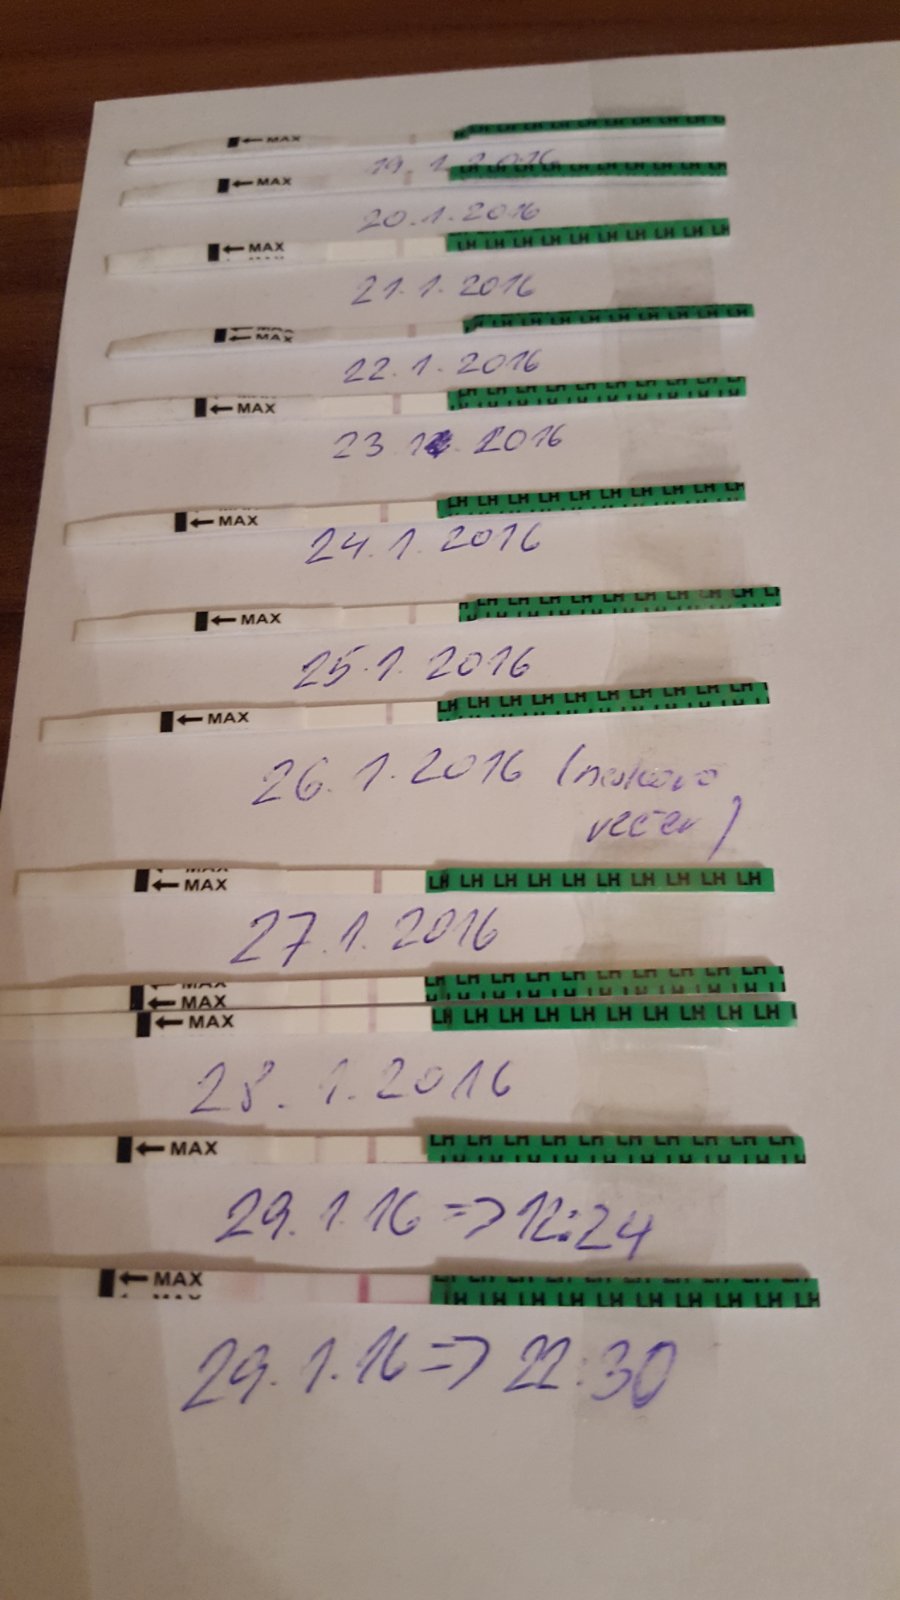 MAX LH LH LH LH LH LH LH LH LH LH
19.1.2016
MAX LH LH LH LH LH LH LH LH LH LH
20.1.2016
MAX LH LH LH LH LH LH LH LH LH
21.1.2016
MAX
MAX LH LH LH LH LH LH LH LH LH
22.1.2016
MAX LH LH LH LH LH LH LH LH LH
23.1.2016
MAX LH LH LH LH LH LH LH LH LH
24.1.2016
MAX LH LH LH LH LH LH LH LH LH
25.1.2016
MAX LH LH LH LH LH LH LH LH LH
26.1.2016 (neskoro
večer)
MAX
MAX LH LH LH LH LH LH LH LH LH LH
27.1.2016
MAX
MAX LH LH LH LH LH LH LH LH LH
MAX LH LH LH LH LH LH LH LH LH LH
28.1.2016
MAX LH LH LH LH LH LH LH LH LH LH
29.1.16 => 12:24
MAX
MAX LH LH LH LH LH LH LH LH LH LH
29.1.16 => 22:30